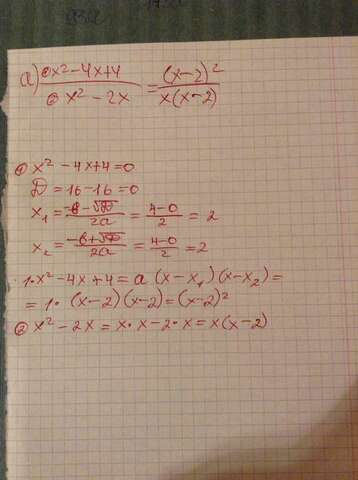 а) ① x² - 4x + 4 / ② x² - 2x = (x-2)² / x(x-2)
① x² - 4x + 4 = 0
D = 16 - 16 = 0
x₁ = -b - √D / 2a = 4-0 / 2 = 2
x₂ = -b + √D / 2a = 4-0 / 2 = 2
1·x² - 4x + 4 = a (x - x₁)(x - x₂) =
= 1· (x-2)(x-2) = (x-2)²
② x² - 2x = x·x - 2·x = x(x-2)